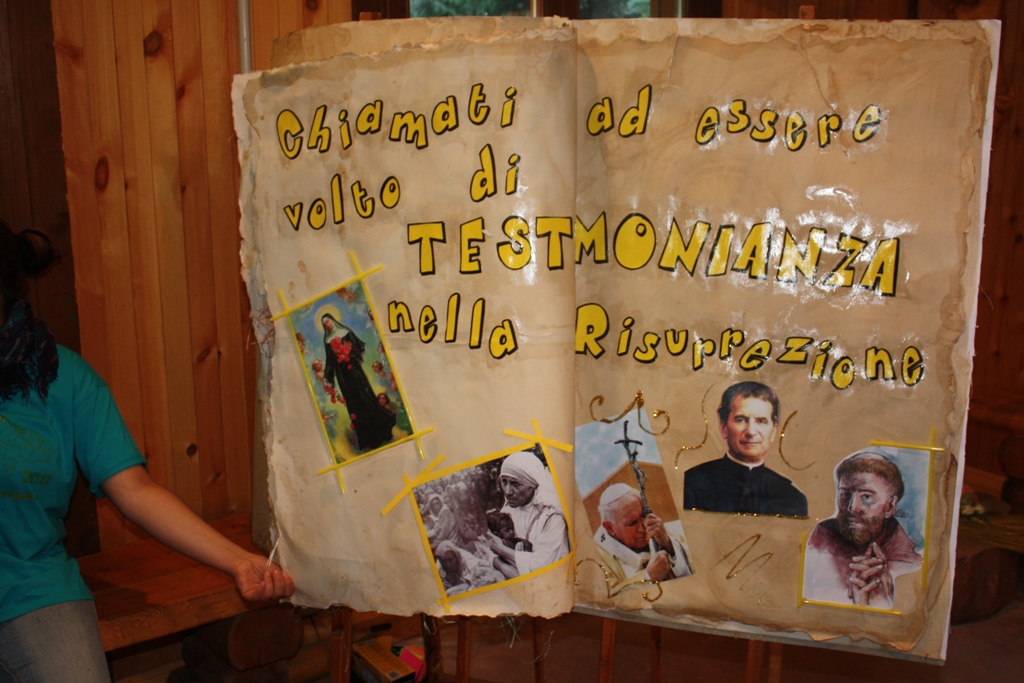 Chiamati ad essere
volto di
TESTMONIANZA
nella Risurrezione